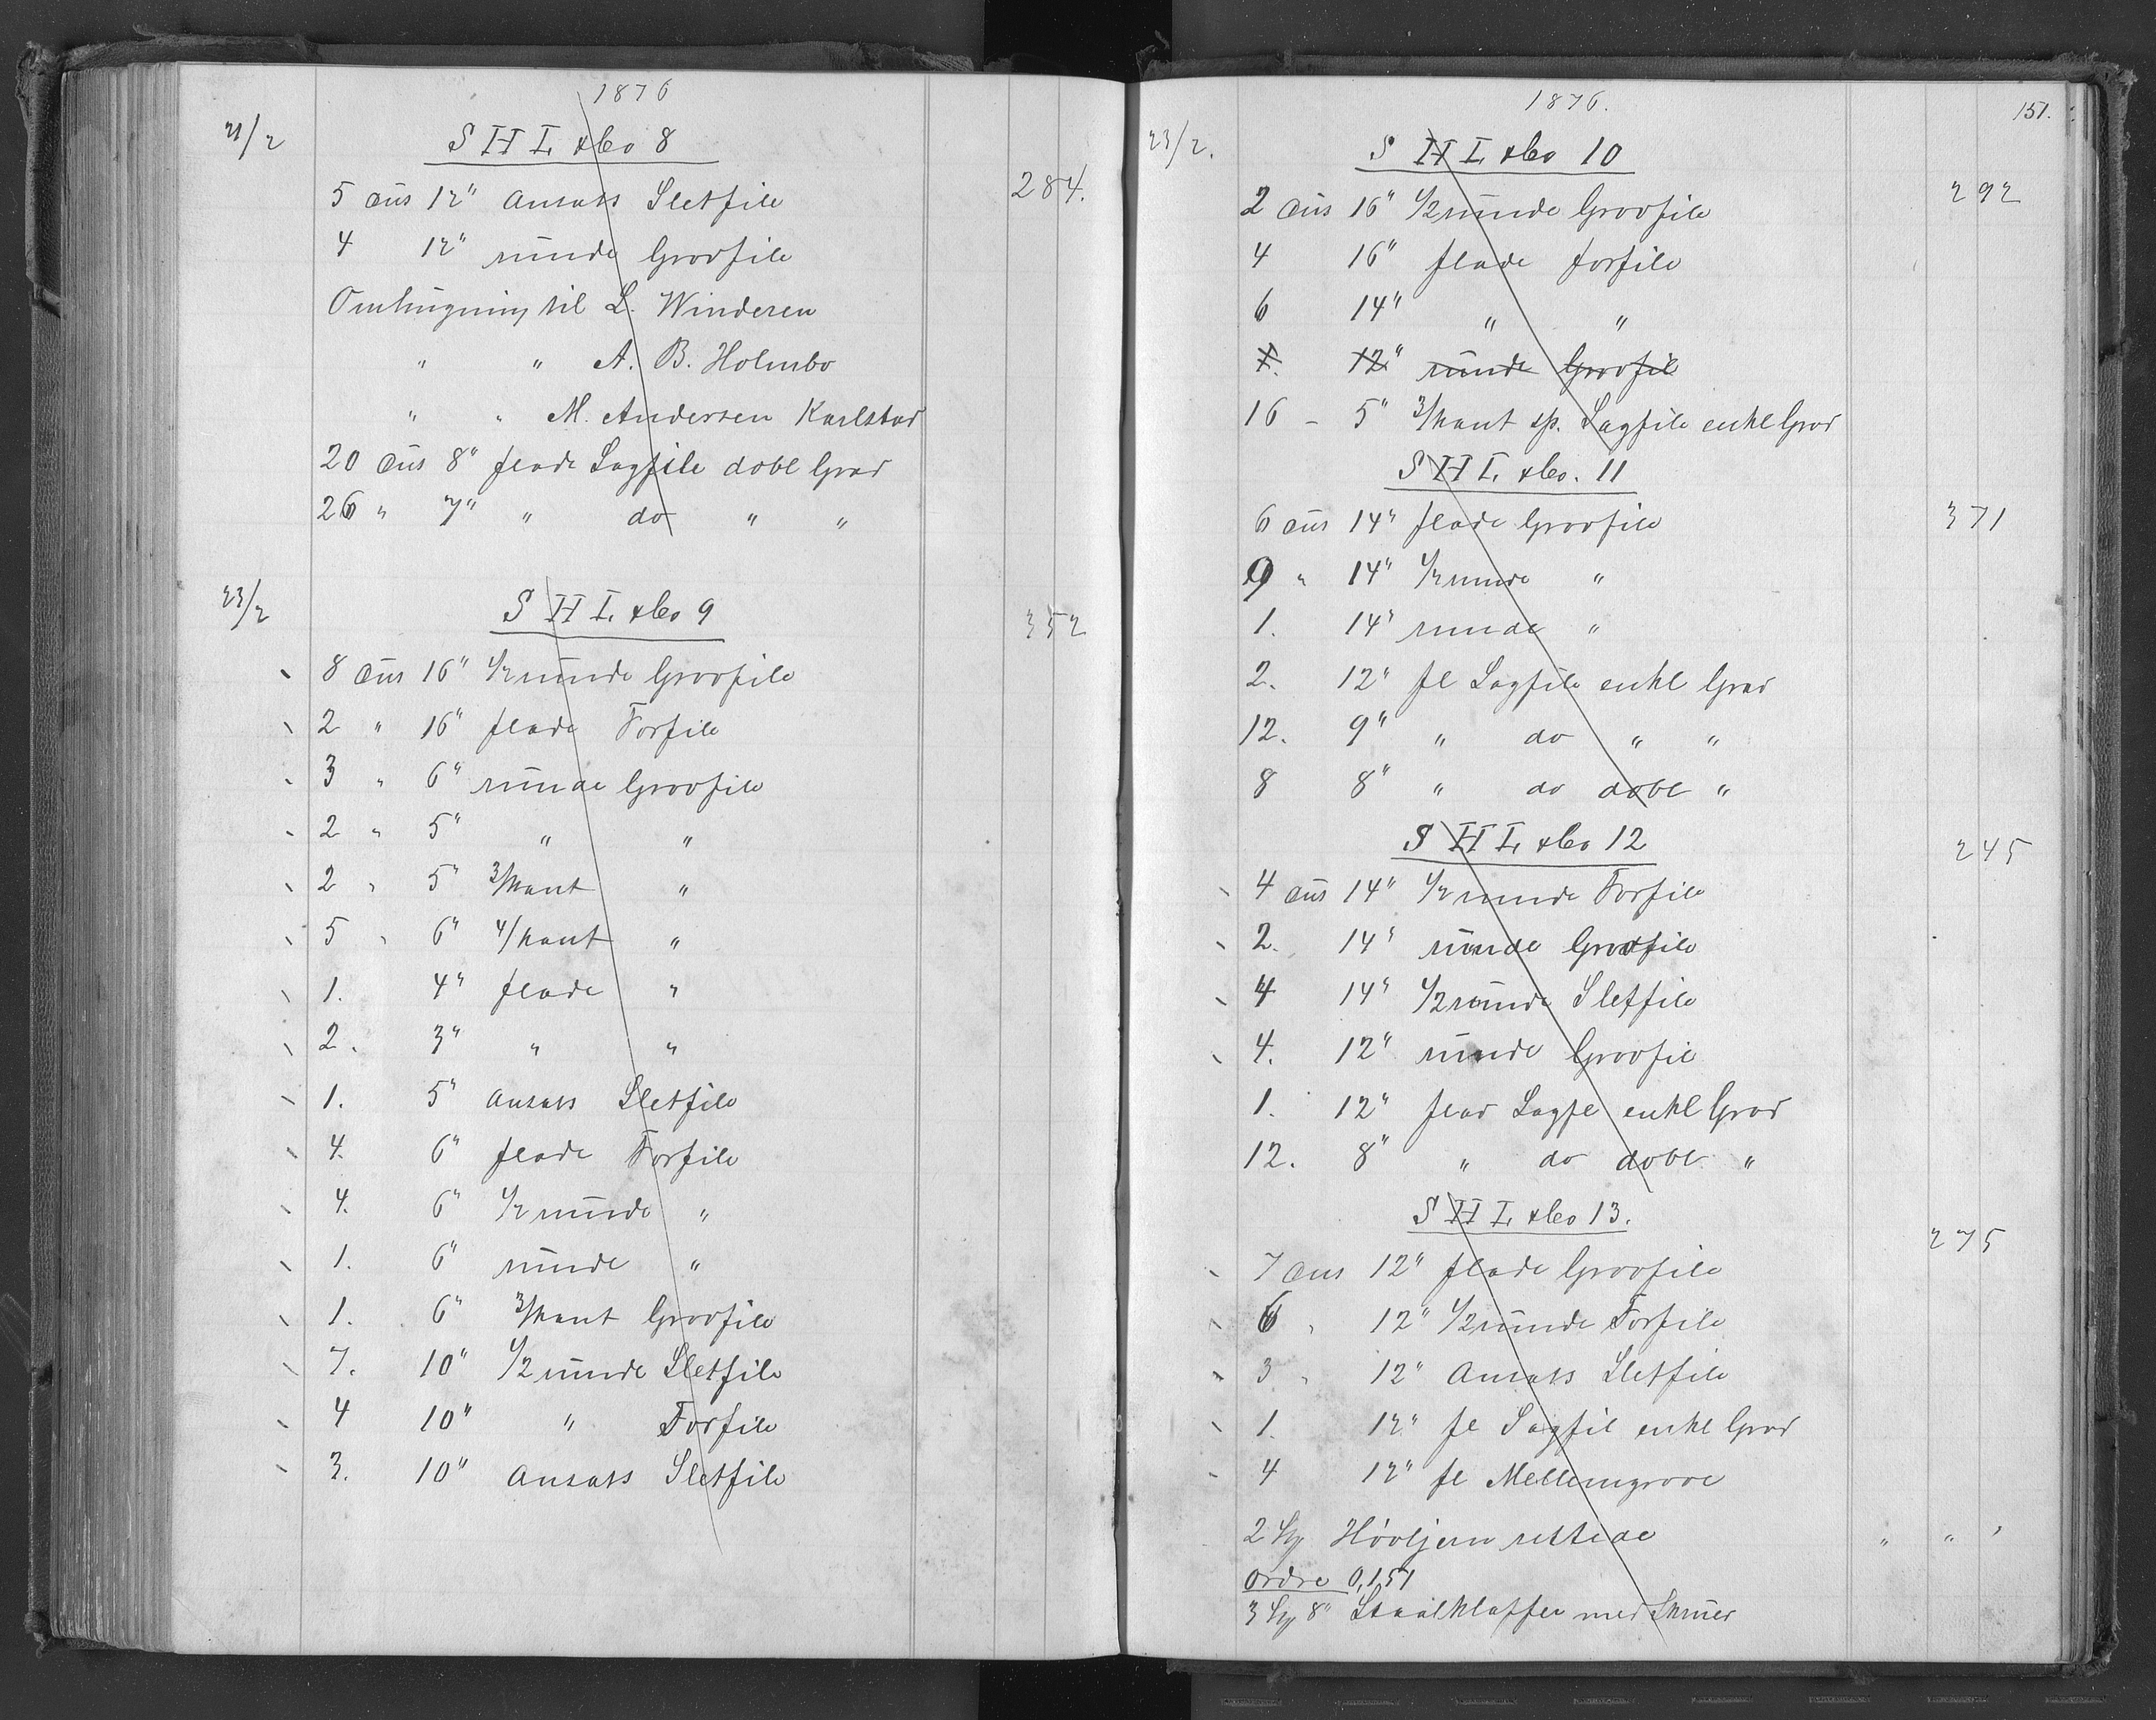 1876
21/2
S H L & Co 8
5 dus 12" Ansats Sletfile 284.
4 12" runde Grovfile
Omhugning til L. Winderen
" " A. B. Holmbo
" " M. Andersen Karlstad
20 dus 8" flade Sagfile dobl Grad
26 " 7" " do " "
23/2
S H L & Co 9
352
8 dus 16" 1/2 runde Grovfile
2 " 16" flade Forfile
3 " 6" runde Grovfile
2 " 5" " "
2 " 5" 3/kant "
5 " 6" 4/kant "
1. 4" flade "
2. 3" " "
1. 5" Ansats Sletfile
4. 6" flade Forfile
4. 6" 1/2 runde "
1. 6" runde "
1. 6" 3/kant Grovfile
7. 10" 1/2 runde Sletfile
4 10" " Forfile
3. 10" Ansats Sletfile
1876.
151.
23/2.
S H L & Co 10
2 dus 16" 1/2 runde Grovfile 292
4 16" flade forfile
6 14" " "
1. 12" runde Grovfil
16 - 5" 3/kant sp. Sagfile enkl Grad
S H L & Co. 11
6 dus 14" flade Grovfile 371
9 " 14" 1/2 runde "
1. 14" runde "
2. 12" fl Sagfile enkl Grad
12. 9" " do " "
8 8" " do dobl "
S H L & Co 12
245
4 dus 14" 1/2 runde Forfile
2. 14" runde Grovfile
4 14" 1/2 runde Sletfile
4. 12" runde Grovfil
1. 12" flad Sagfl enkl Grad
12. 8" " do dobl "
S H L & Co 13.
275
7 dus 12" flade Grovfile
6 " 12" 1/2 runde Forfile
3 " 12" Ansats Sletfile
1. 12" fl Sagfil enkl Grad
4 12" fl Mellemgrove
2 Høvljern rettede " " "
Ordre 0,151
3 8" Staalklaffer med Skruer